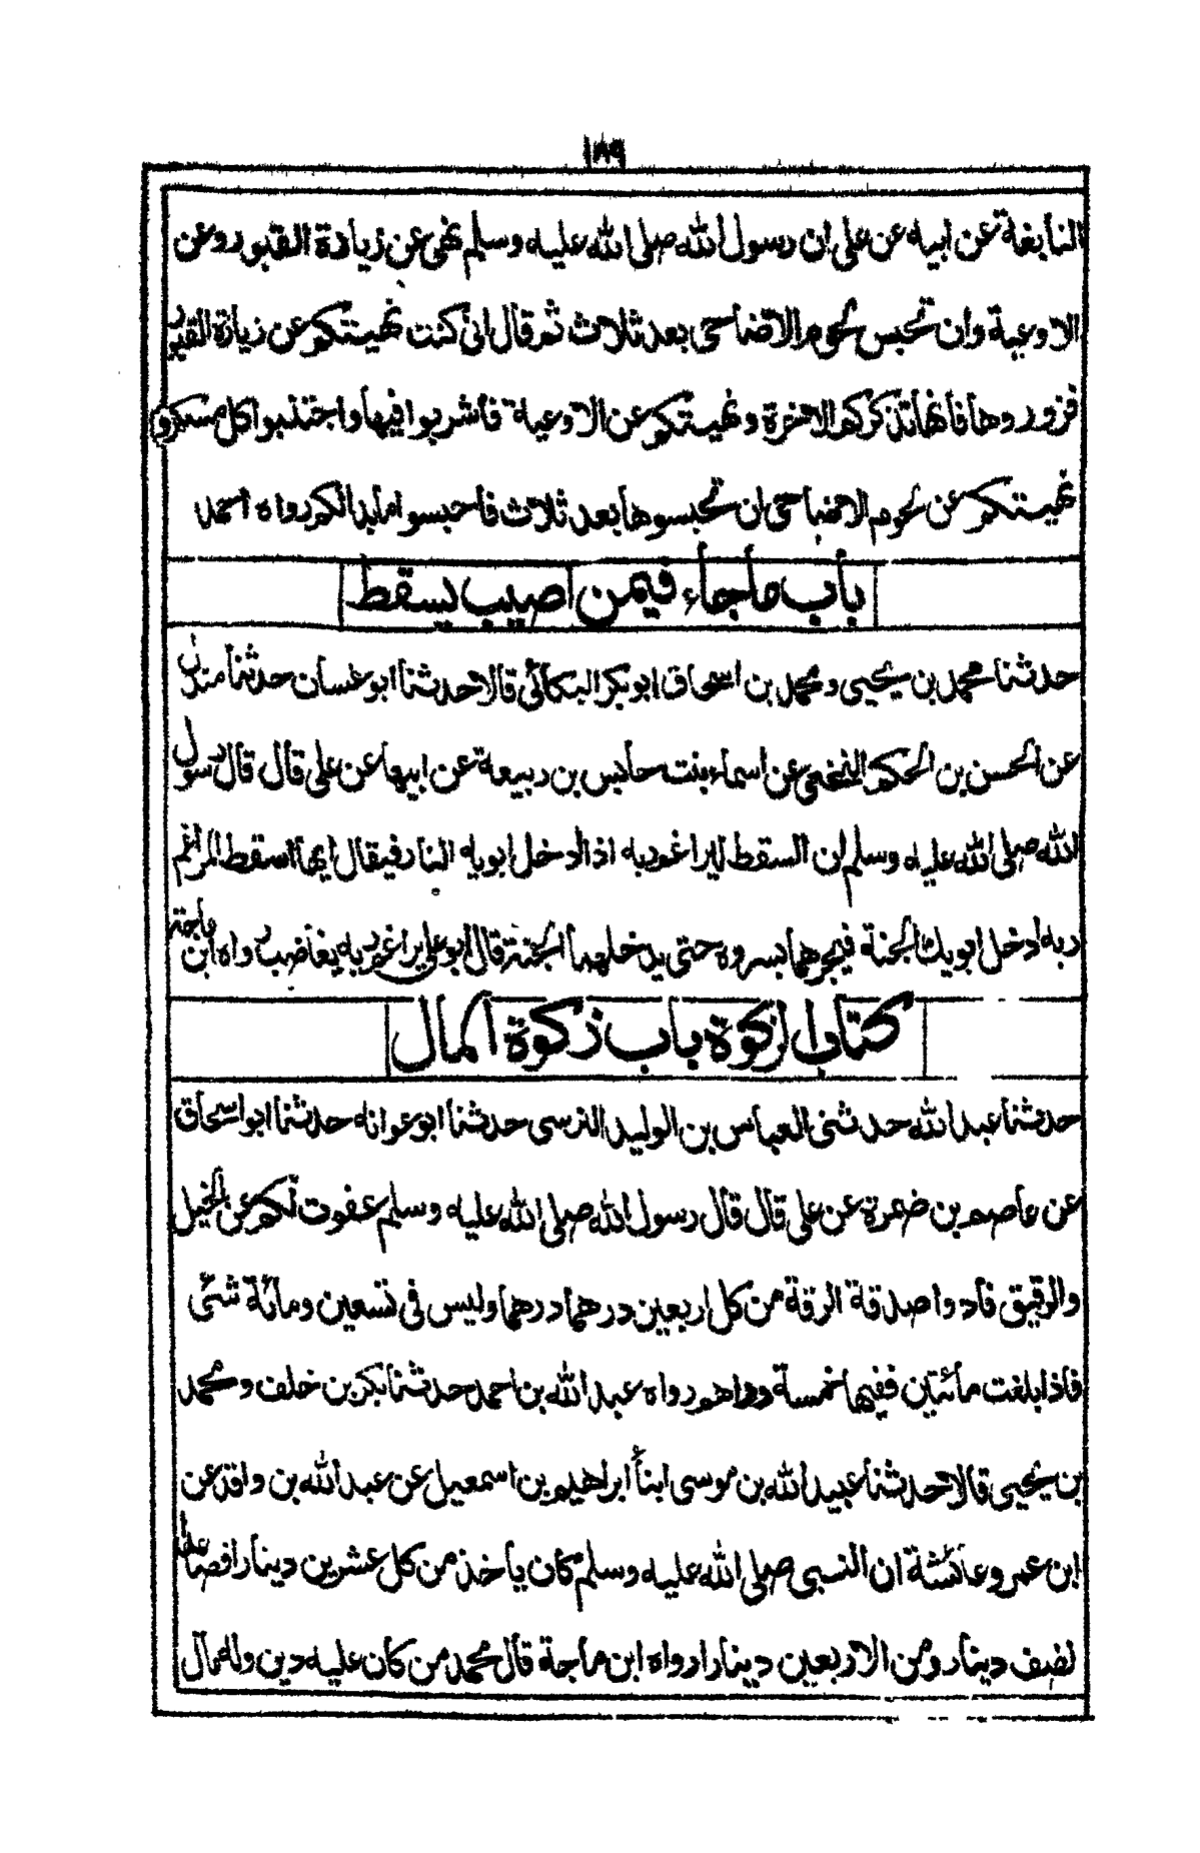 ١٨٩
النابغة عن ابيه عن على ان رسول الله صلى الله عليه وسلم نهى عن زيارة القبور وعن
الاوعية وان تحبس لحوم الاضاحى بعد ثلاث ثم قال انى كنت نهيتكم عن زيارة القبور
فزوروها فانها تذكركم الاخرة ونهيتكم عن الاوعية فاشربوا فيها واجتنبوا كل مسكر و
نهيتكم عن لحوم الاضاحى ان تحبسوها بعد ثلاث فاحبسوا مابدا لكم رواه احمد
باب ماجاء فيمن اصيب بسقط
حدثنا محمد بن يحيى ومحمد بن اسحاق ابو بكر البكائى قالا حدثنا ابو غسان حدثنا مندل
عن الحسن بن الحكم النخعى عن اسماء بنت حابس بن ربيعة عن ابيها عن على قال قال رسول
الله صلى الله عليه وسلم ان السقط ليراغم ربه اذا ادخل ابويه النار فيقال ايها السقط المراغم
ربه ادخل ابويك الجنة فيجرهما بسرره حتى يدخلهما الجنة قال ابو على يراغم ربه يغاضب رواه ابن ماجة
كتاب الزكوة باب زكوة المال
حدثنا عبد الله حدثنى العباس بن الوليد النرسى حدثنا ابو عوانه حدثنا ابو اسحاق
عن عاصم بن ضمرة عن على قال قال رسول الله صلى الله عليه وسلم عفوت لكم عن الخيل
والرقيق فأدوا صدقة الرقة من كل اربعين درهما درهما وليس فى تسعين ومائة شئى
فاذا بلغت مائتين ففيها خمسة دراهم رواه عبد الله بن احمد حدثنا بكر بن خلف ومحمد
بن يحيى قالا حدثنا عبيد الله بن موسى ابنأ ابراهيم بن اسمعيل عن عبد الله بن واقد عن
ابن عمر وعائشة ان النبى صلى الله عليه وسلم كان يأخذ من كل عشرين دينارا فصاعدا
نصف دينار ومن الاربعين دينارا رواه ابن ماجة قال محمد من كان عليه دين وله مال